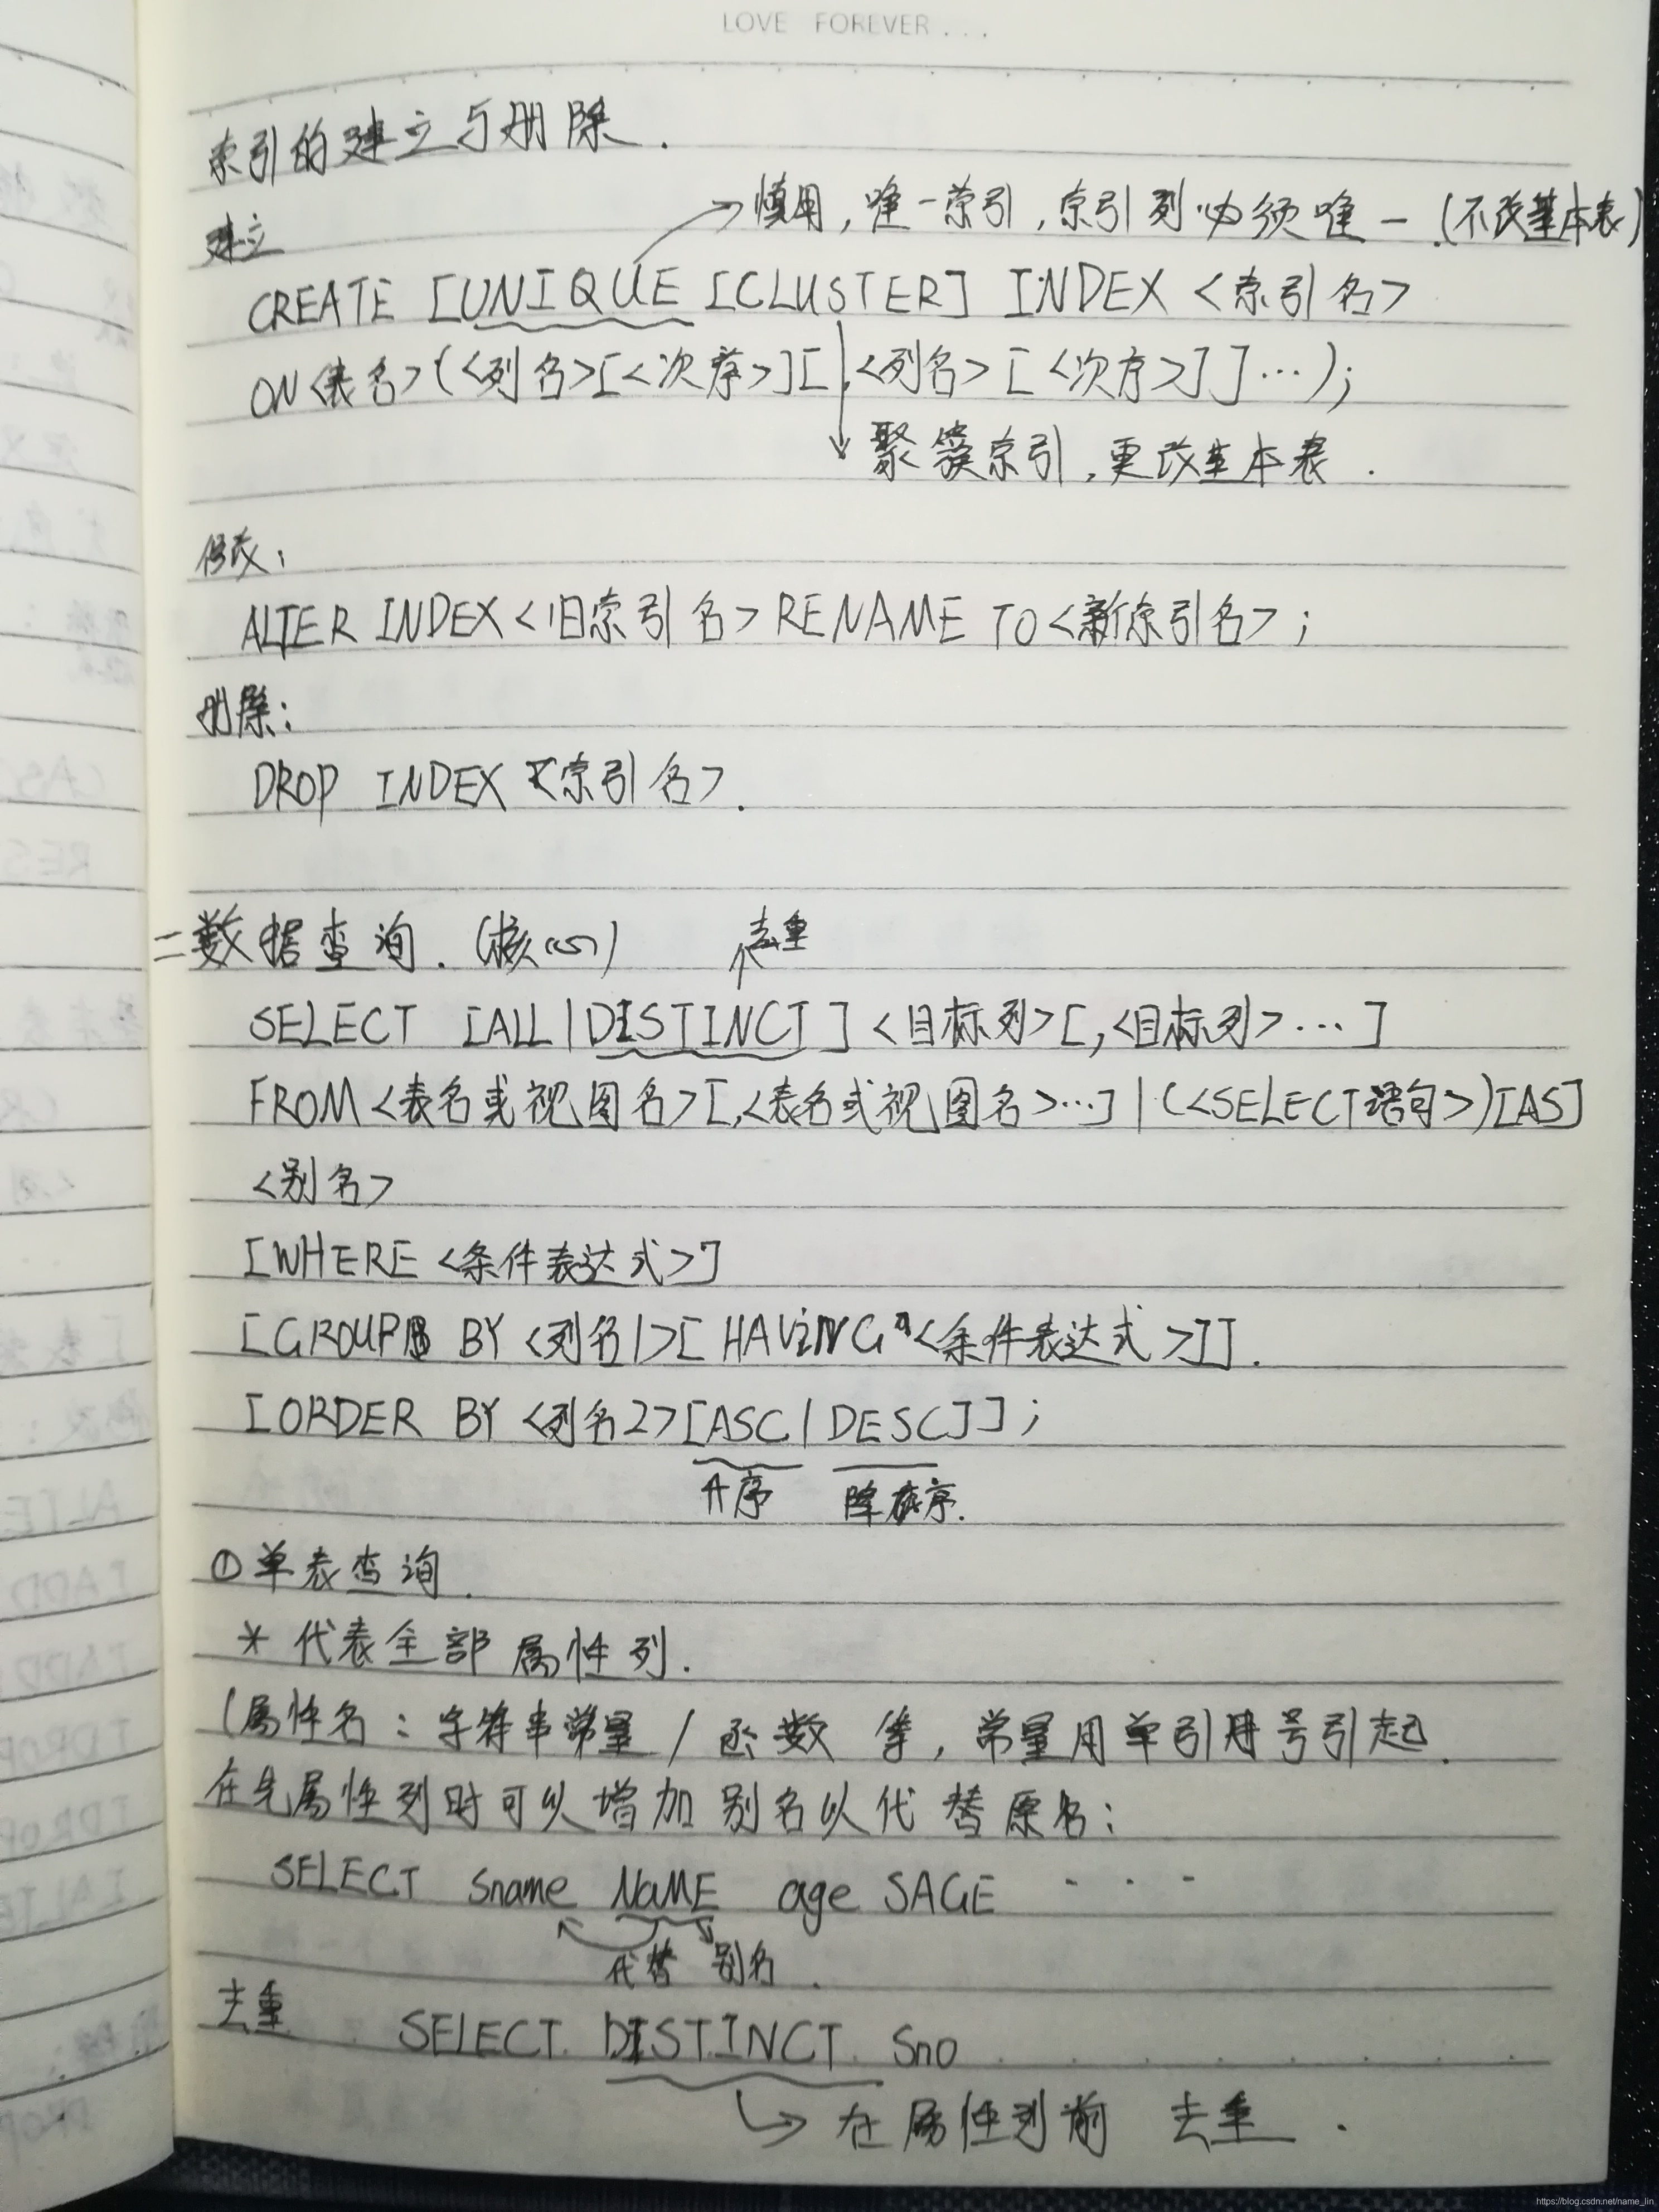 LOVE FOREVER...
索引的建立与删除.
建立
→慎用,唯一索引,索引列必须唯一.(不改基本表)
CREATE [UNIQUE [CLUSTER] INDEX <索引名>
ON<表名>(<列名>[<次序>][,<列名>[<次序>]]…);
聚簇索引,更改基本表.
修改:
ALTER INDEX<旧索引名>RENAME TO<新索引名>;
删除:
DROP INDEX <索引名>.
二数据查询.(核心)
去重
SELECT [ALL|DISTINCT]<目标列>[,<目标列>…]
FROM<表名或视图名>[,<表名或视图名>…]|(<SELECT语句>)[AS]
<别名>
[WHERE <条件表达式>]
[GROUP BY <列名1>[HAViNG <条件表达式>]].
[ORDER BY <列名2>[ASC|DESC]];
升序 降序.
①单表查询.
* 代表全部属性列.
(属性名:字符串常量/函数 等,常量用单引号引起.
在先属性列时可以增加别名以代替原名:
SELECT Sname NaME age SAGE ...
代替 别名.
去重 SELECT DISTINCT Sno
→在属性列前 去重.
https://blog.csdn.net/name_lin